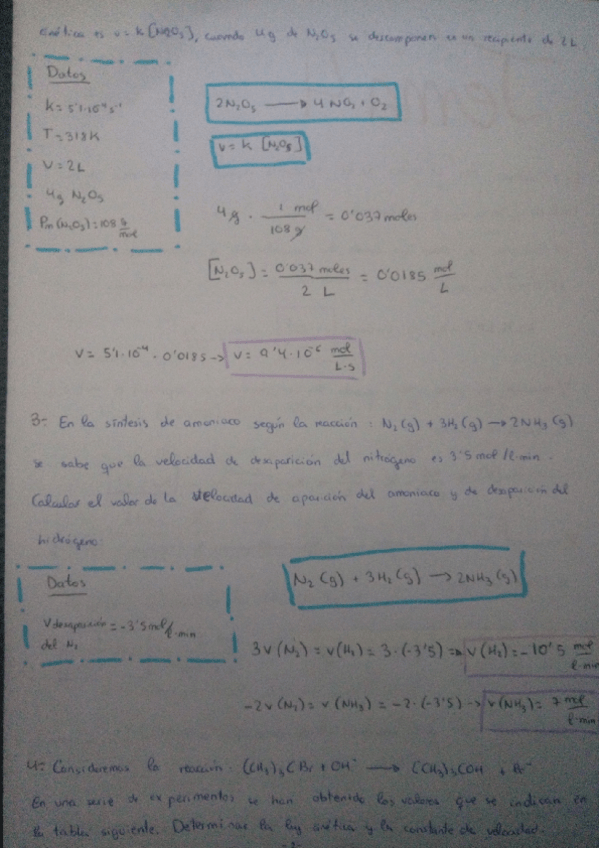 cinética es v = k [N2O5], cuando 4g de N2O5 se descomponen en un recipiente de 2L
Datos
k = 5'1·10⁻⁴ s⁻¹
T = 318K
V = 2L
4g N2O5
Pm(N2O5) = 108 g/mol
2N2O5 → 4NO2 + O2
v = k [N2O5]
4g · 1 mol / 108 g = 0'037 moles
[N2O5] = 0'037 moles / 2 L = 0'0185 mol/L
v = 5'1·10⁻⁴ · 0'0185 → v = 9'4·10⁻⁶ mol/L·s
3- En la síntesis de amoniaco según la reacción : N2(g) + 3H2(g) → 2NH3(g)
se sabe que la velocidad de desaparición del nitrógeno es 3'5 mol/l·min.
Calcular el valor de la velocidad de aparición del amoniaco y de desaparición del
hidrógeno.
Datos
v desaparición = -3'5 mol/l·min
del N2
N2(g) + 3H2(g) → 2NH3(g)
3v(N2) = v(H2) = 3·(-3'5) → v(H2) = -10'5 mol/l·min
-2v(N2) = v(NH3) = -2·(-3'5) → v(NH3) = 7 mol/l·min
4- Consideremos la reacción: (CH3)3CBr + OH⁻ → (CH3)3COH + Br⁻
En una serie de experimentos se han obtenido los valores que se indican en
la tabla siguiente. Determinar la ley cinética y la constante de velocidad.
-1-